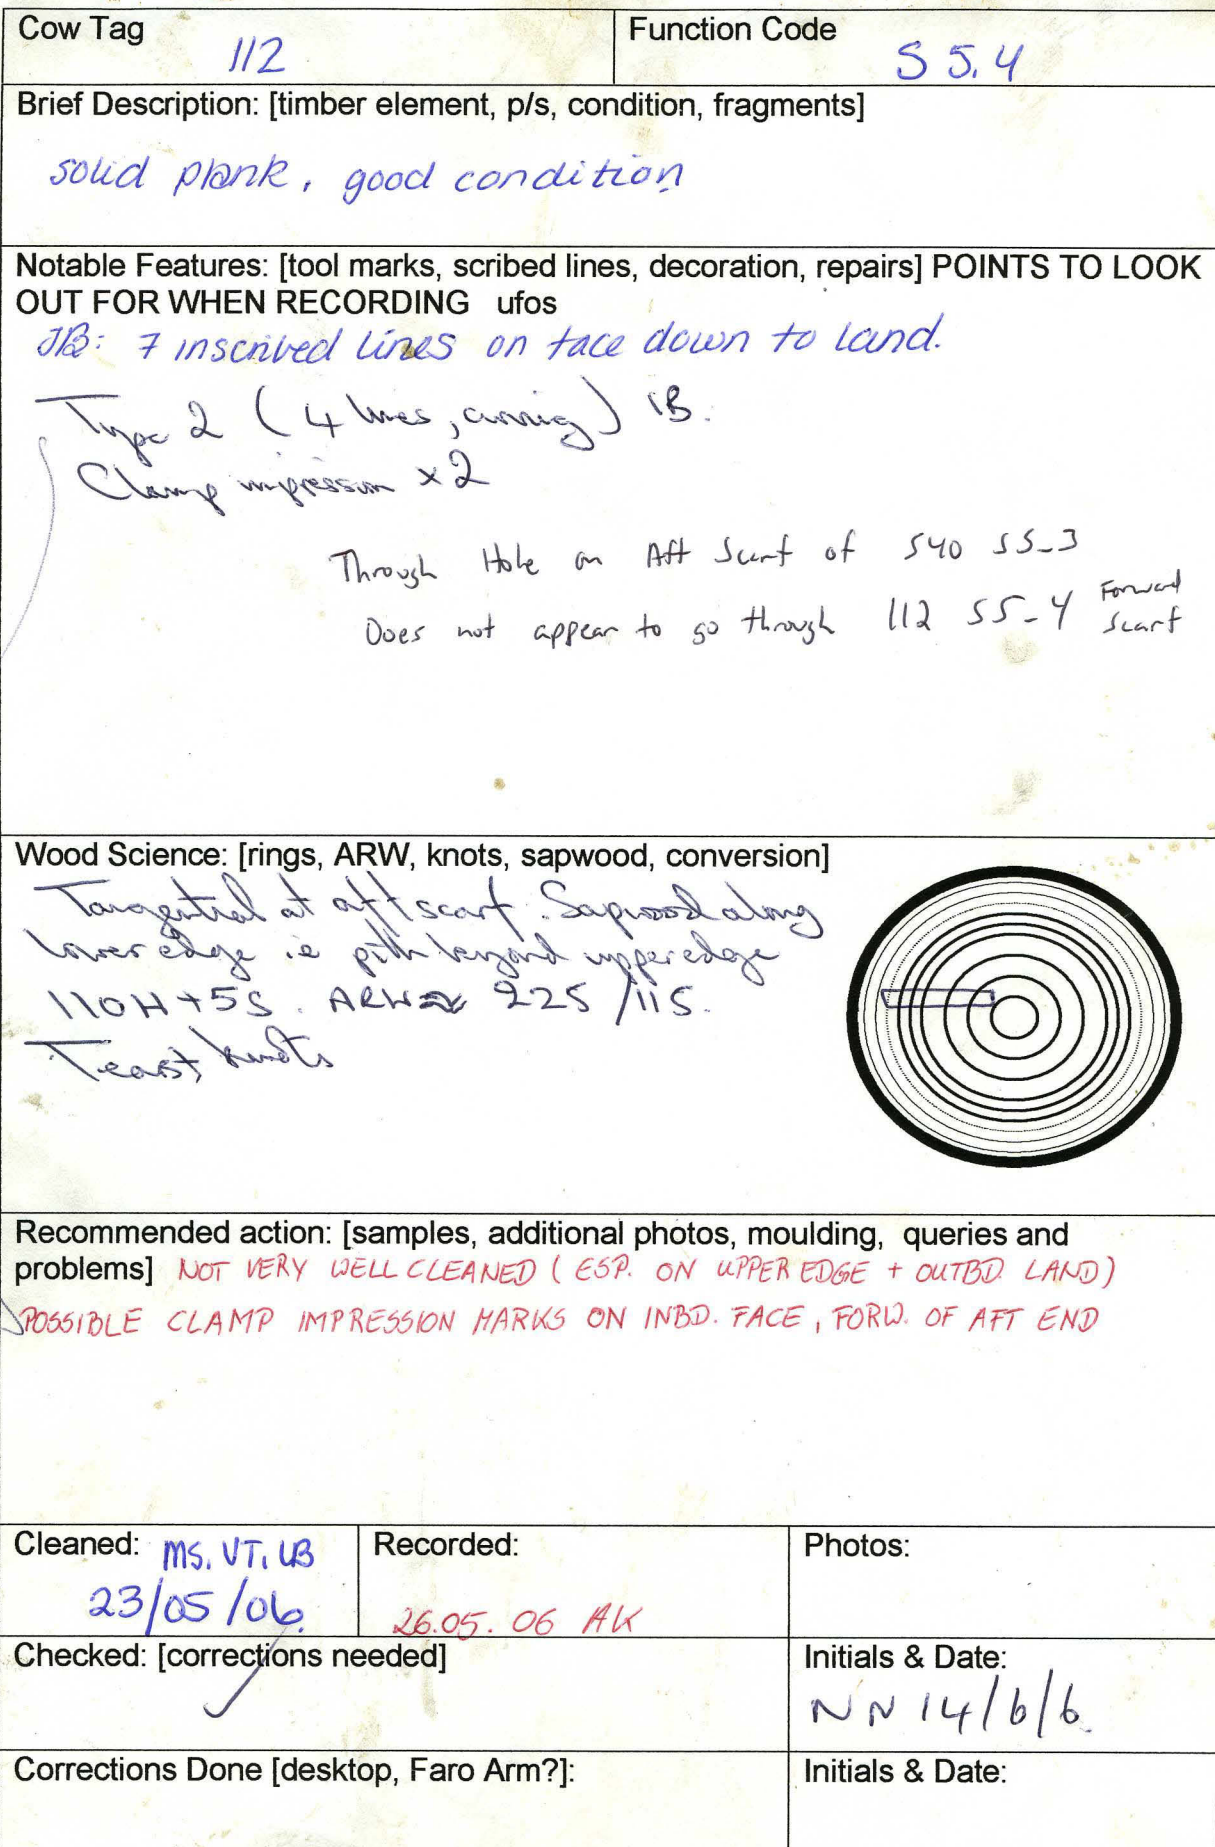 Cow Tag
112
Function Code
S 5.4
Brief Description: [timber element, p/s, condition, fragments]
solid plank, good condition
Notable Features: [tool marks, scribed lines, decoration, repairs] POINTS TO LOOK
OUT FOR WHEN RECORDING ufos
JB: 7 inscribed lines on face down to land.
Type 2 (4 lines, curving) IB.
Clamp impression x2
Through Hole on Aft Scarf of 540 S5-3
Does not appear to go through 112 S5-4 Forward
Scarf
Wood Science: [rings, ARW, knots, sapwood, conversion]
Tangential at aft scarf. Sapwood along
lower edge ie pith beyond upper edge
110H+5S. ARW≈ 225/115.
knots
Recommended action: [samples, additional photos, moulding, queries and
problems] NOT VERY WELL CLEANED (ESP. ON UPPER EDGE + OUTBD. LAND)
POSSIBLE CLAMP IMPRESSION MARKS ON INBD. FACE, FORW. OF AFT END
Cleaned: MS. VT. LB
23/05/06.
Recorded:
26.05.06 AK
Photos:
Checked: [corrections needed]
✓
Initials & Date:
NN 14/6/6.
Corrections Done [desktop, Faro Arm?]:
Initials & Date: